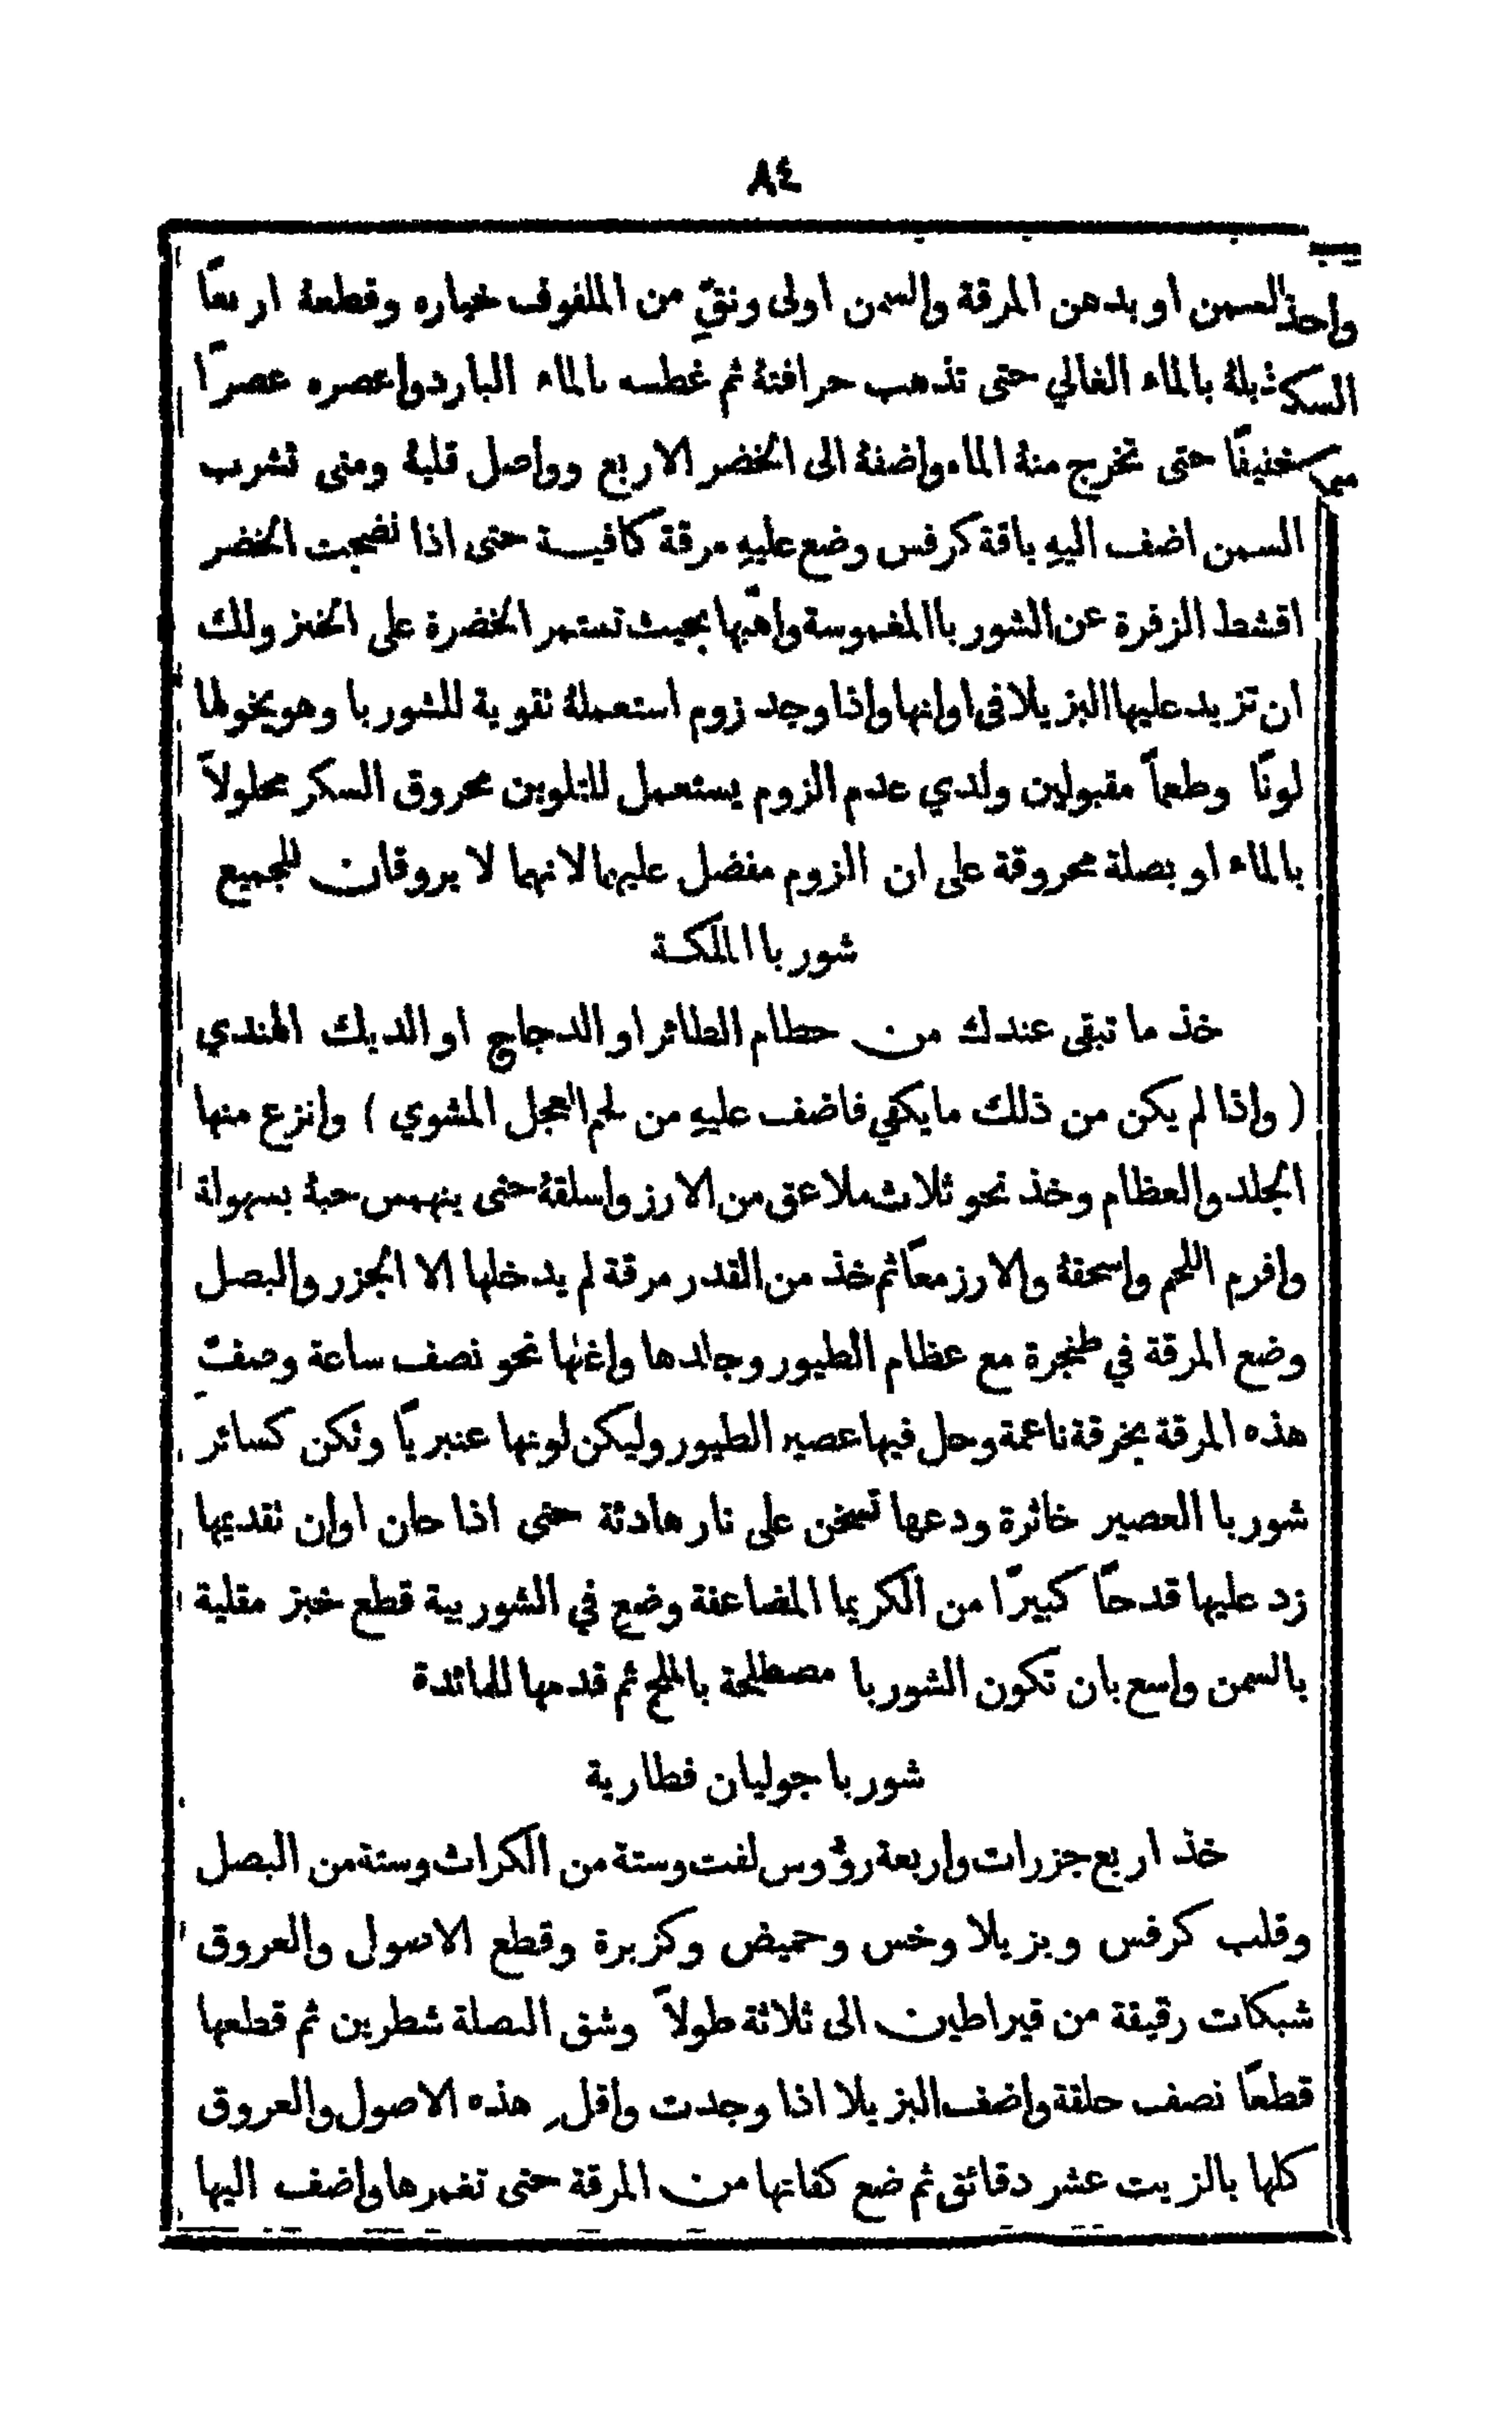 ٨٤
واحذ السمن او بدهن المرقة والسمن اولى ونقِّ من الملفوف خياره وقطعهُ اربعًا
السك ذبلهُ بالماء الغالي حتى تذهب حرافتهُ ثم غطسه بالماء البارد واعصره عصرًا
خفيفًا حتى تخرج منهُ الماء واضفهُ الى الخضر الاربع وواصل قليهُ ومتى تشرب
السمن اضف اليهِ باقة كرفس وضع عليهِ مرقة كافيـة حتى اذا نضجت الخضر
اقشط الزفرة عن الشوربا المغموسة واهّبها بحيث تستمر الخضرة على الخبز ولك
ان تزيد عليها البزيلا في اوانها واذا وجد زوم استعملهُ تقوية للشوربا وهو يخولها
لونًا وطعمًا مقبولين ولدي عدم الزوم يستعمل للتلوين محروق السكر محلولاً
بالماء او بصلة محروقة على ان الزوم مفضل عليهما لانهما لا يروقان للجميع
شوربا الملكـة
خذ ما تبقى عندك من حطام الطائر او الدجاج او الديك الهندي
( واذا لم يكن من ذلك ما يكفي فاضف عليهِ من لحم العجل المشوي ) وانزع منها
الجلد والعظام وخذ نحو ثلاث ملاعق من الارز واسلقهُ حتى ينهمس حبهُ بسهولة
وافرم اللحم واسحقهُ والارز معًا ثم خذ من القدر مرقة لم يدخلها الا الجزر والبصل
وضع المرقة في طنجرة مع عظام الطيور وجلدها واغلها نحو نصف ساعة وصفِّ
هذه المرقة بخرقة ناعمة وحل فيها عصير الطيور وليكن لونها عنبريًا وتكن كسائر
شوربا العصير خاثرة ودعها تسخن على نار هادئة حتى اذا حان اوان تقديمها
زد عليها قدحًا كبيرًا من الكريما المضاعفة وضع في الشوربية قطع خبز مقلية
بالسمن واسع بان تكون الشوربا مصطلحة بالملح ثم قدمها للمائدة
شوربا جوليان قطارية
خذ اربع جزرات واربعة رؤوس لفت وستة من الكراث وستة من البصل
وقلب كرفس وبزيلا وخس وحميض وكزبرة وقطع الاصول والعروق
شبكات رقيقة من قيراطين الى ثلاثة طولاً وشق البصلة شطرين ثم قطعها
قطعًا نصف حلقة واضف البزيلا اذا وجدت واقلِ هذه الاصول والعروق
كلها بالزيت عشر دقائق ثم ضع كفاتها من المرقة حتى تغمرها واضف اليها